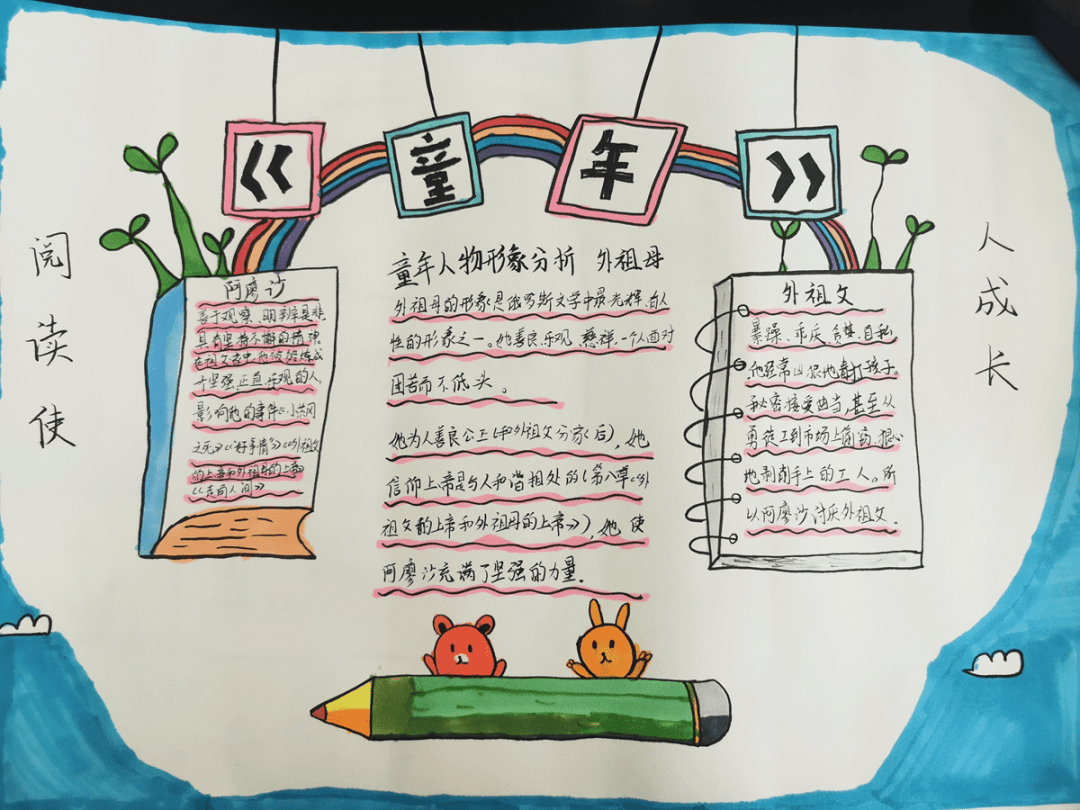 《童年》
阅读使
人成长
阿廖沙
善于观察、明辨是非
具有坚持不懈的精神
在祖父家中,他被锻炼成
个坚强、正直、乐观的人
影响他的事件《小茨冈
之死》《"好事情"》《外祖父
的上帝和外祖母的上帝》
《走向人间》
童年人物形象分析 外祖母
外祖母的形象是俄罗斯文学中最光辉、有人
性的形象之一。她善良、乐观、慈祥、一个人面对
困苦而不低头。
她为人善良公正(和外祖父分家后),她
信仰上帝是与人和谐相处的(第八章《外
祖父的上帝和外祖母的上帝》),她使
阿廖沙充满了坚强的力量.
外祖父
暴躁、乖戾、贪婪、自私
他经常凶狠地毒打孩子。
秘密接受典当,甚至怂
恿徒工到市场上偷窃,狠心
地剥削手上的工人。所
以阿廖沙讨厌外祖父.